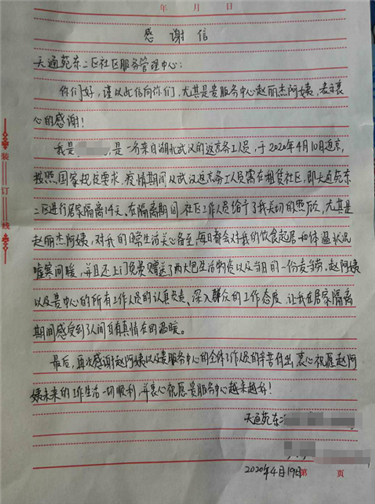 年 月 日
感谢信
天通苑东二区社区服务管理中心:
你们好,谨以此信向你们,尤其是贵服务中心赵丽杰阿姨,表示衷
心的感谢!
我是 是一名来自湖北武汉的返京务工人员,于2020年4月10返京,
按照国家规定要求,疫情期间从武汉返京务工人员需在租赁社区,即天通苑东
二区进行居家隔离14天,在隔离期间,社区工作人员给予了我 的照顾,尤其是
赵丽杰阿姨,对我的日常生活关心备至,每日都会对我的饮食起居和体温状况
嘘寒问暖,并且还上门免费赠送了两大包生活物资以及当日的一份麦当劳,赵阿姨
以及贵中心的所有工作人员的认真负责、深入群众的工作态度,让我在居家隔离
期间感受到了人间自有真情在的温暖。
最后,再次感谢赵阿姨以及贵服务中心的全体工作人员的辛苦付出,衷心祝愿赵阿
姨未来的工作生活一切顺利,并衷心祝愿贵服务中心越来越好!
天通苑东
2020年4月19日
第 页
装
订
线